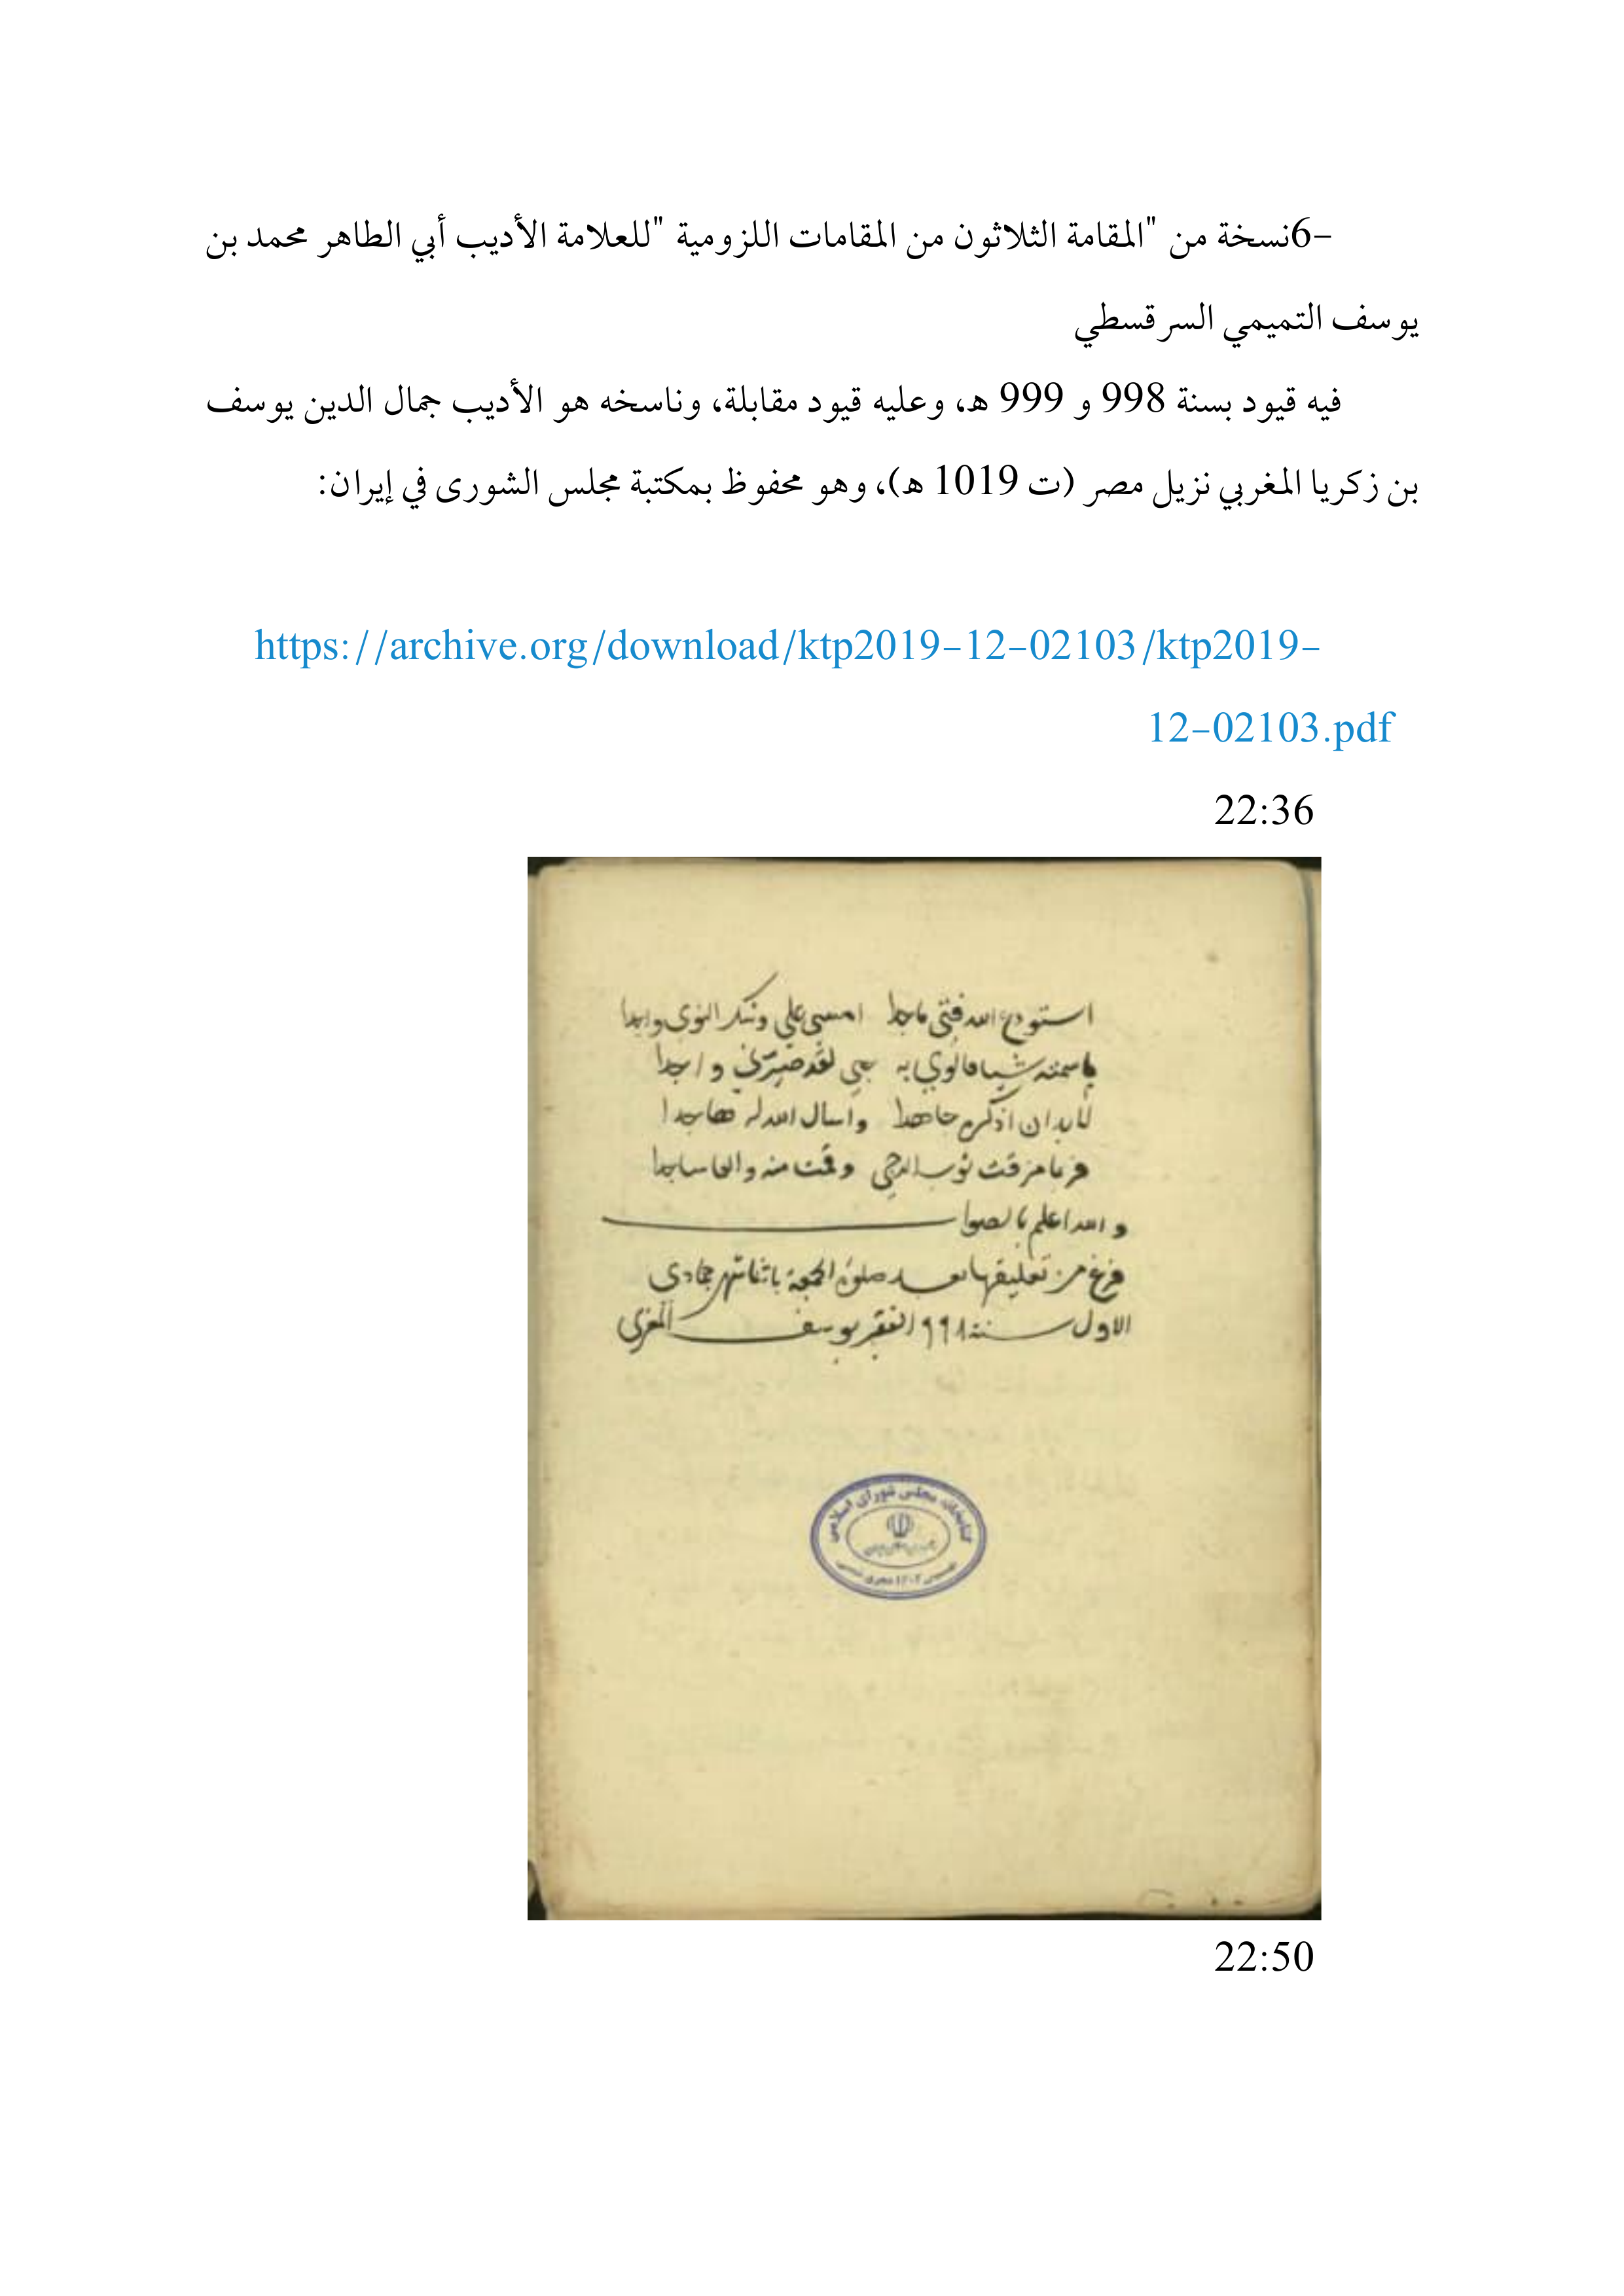 -6نسخة من "المقامة الثلاثون من المقامات اللزومية "للعلامة الأديب أبي الطاهر محمد بن
يوسف التميمي السرقسطي
فيه قيود بسنة 998 و 999 هـ، وعليه قيود مقابلة، وناسخه هو الأديب جمال الدين يوسف
بن زكريا المغربي نزيل مصر (ت 1019 هـ)، وهو محفوظ بمكتبة مجلس الشورى في إيران:
https://archive.org/download/ktp2019-12-02103/ktp2019-
12-02103.pdf
22:36
استودع الله فتى ماجدا امسى على وشك النوى واجدا
يا سمته شيا فالوي به لقد صيرتني واجدا
لابد ان اذكره جاهدا واسال الله له هاجدا
فربما مزقت ثوب الدجى وقمت منه والها ساجدا
والله اعلم بالصواب
فرغ من تعليقها بعد صلوة الجمعة باثنا شهر جمادى
الاول سنة ٩٩٨ الفقير يوسف المغربي
كتابخانه مجلس شورای اسلامی
22:50